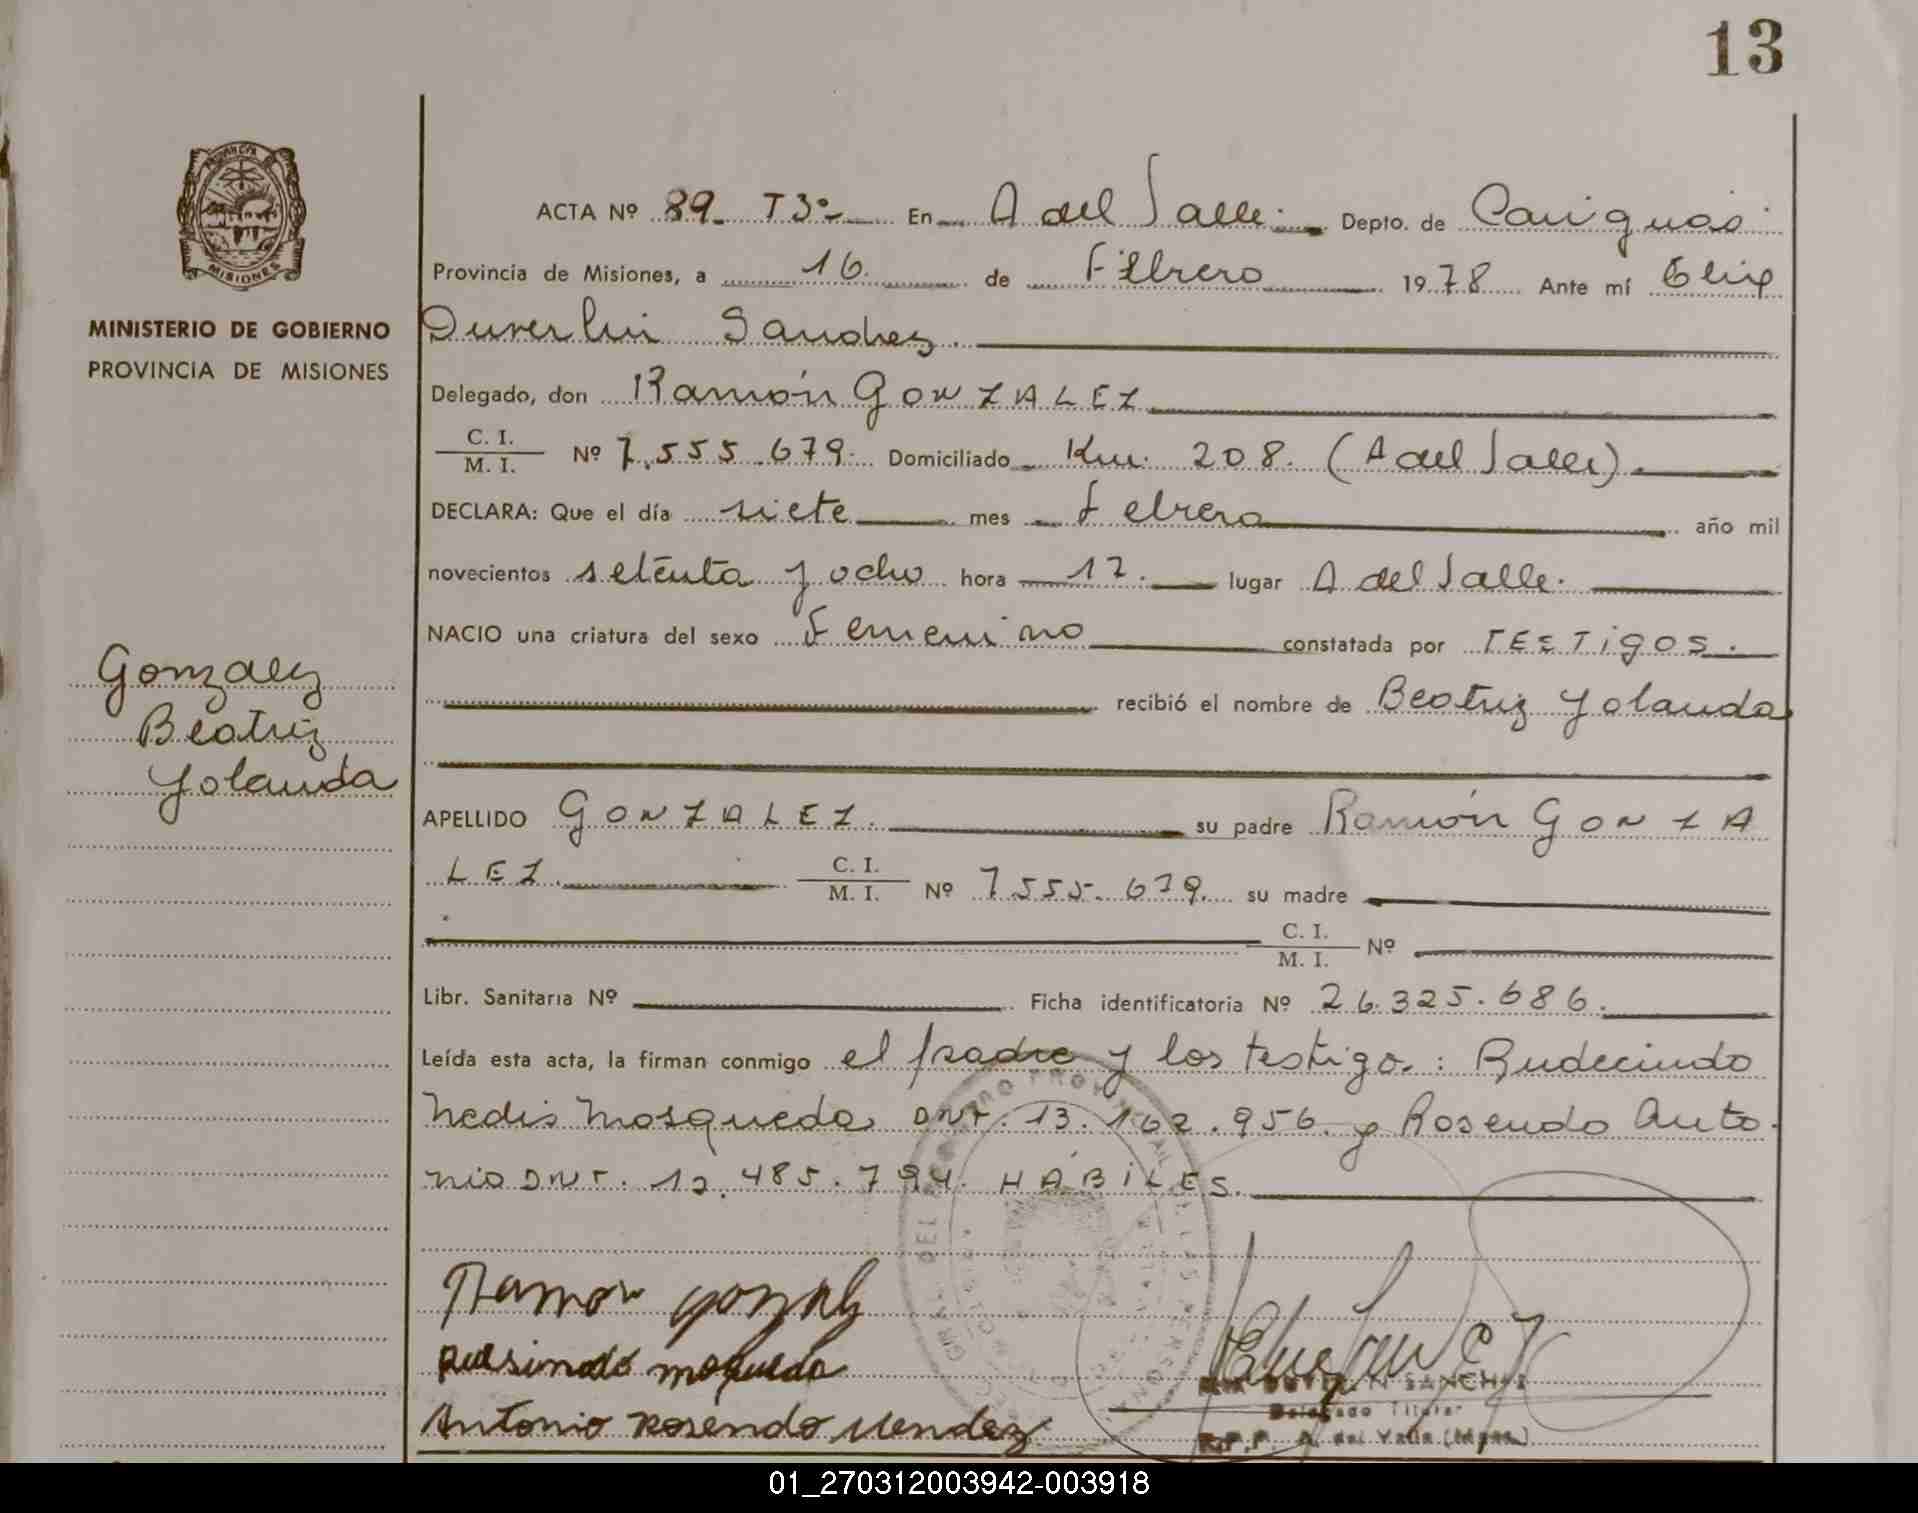 13
PROVINCIA DE
MISIONES
MINISTERIO DE GOBIERNO
PROVINCIA DE MISIONES
Gonzalez
Beatriz
Yolanda
ACTA Nº 89 T3º En A del Valle. Depto. de Cainguas
Provincia de Misiones, a 16 de Febrero 1978 Ante mí Elix
Duverlin Sanchez.
Delegado, don Ramón GONZALEZ
C. I.
M. I. Nº 7.555.679. Domiciliado Km. 208. (A del Valle).
DECLARA: Que el día siete mes Febrero año mil
novecientos setenta y ocho hora 17. lugar A del Valle.
NACIO una criatura del sexo Femenino constatada por TESTigos.
recibió el nombre de Beatriz Yolanda
APELLIDO GONZALEZ. su padre Ramón GONZA
LEZ. C. I.
M. I. Nº 7.555.679. su madre
C. I.
M. I. Nº
Libr. Sanitaria Nº Ficha identificatoria Nº 26.325.686.
Leída esta acta, la firman conmigo el padre y los testigos: Rudecindo
Nedis Mosqueda DNI. 13.162.956. y Rosendo Anto
nio DNI. 12.485.794. HÁBILES.
Ramon Gonzalez
Rudesindo Moqueda
Antonio Rosendo Mendez
SANCHEZ
Delegado Titular
R.P.P. A. del Valle (Mnes.)
01_270312003942-003918